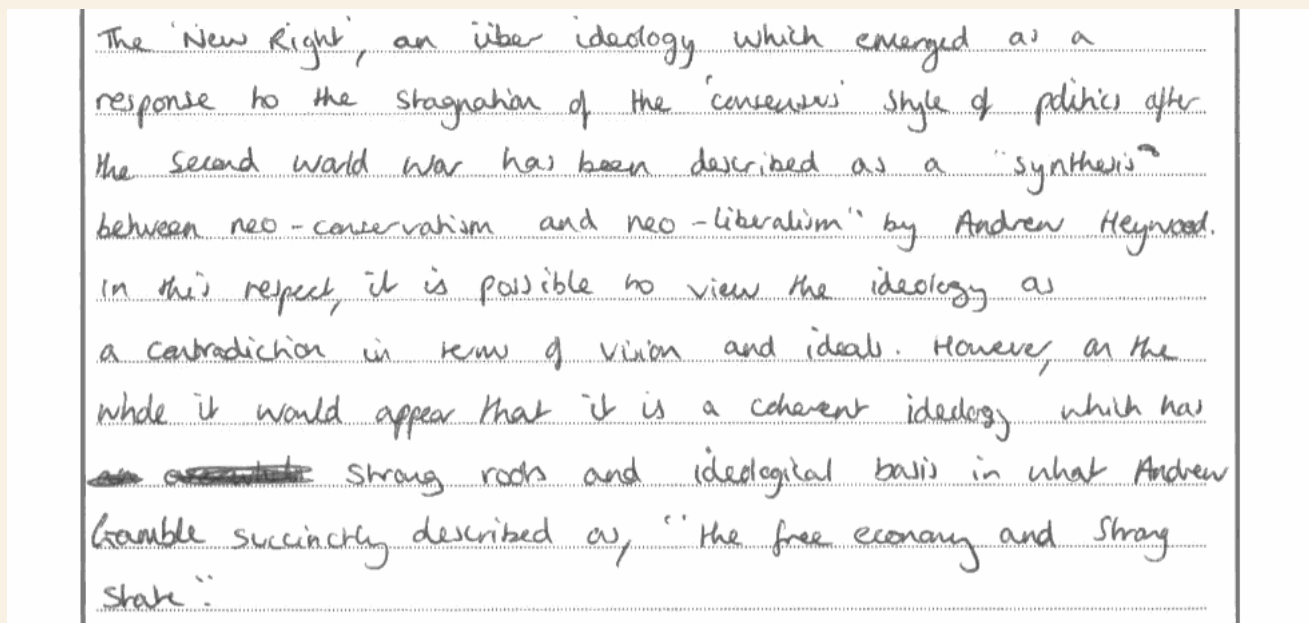 The 'New Right', an über ideology which emerged as a
response to the stagnation of the 'consensus' style of politics after
the second world war has been described as a "synthesis
between neo-conservatism and neo-liberalism" by Andrew Heywood.
In this respect, it is possible to view the ideology as
a contradiction in terms of vision and ideals. However, on the
whole it would appear that it is a coherent ideology which has
strong roots and ideological basis in what Andrew
Gamble succinctly described as, "the free economy and strong
state".